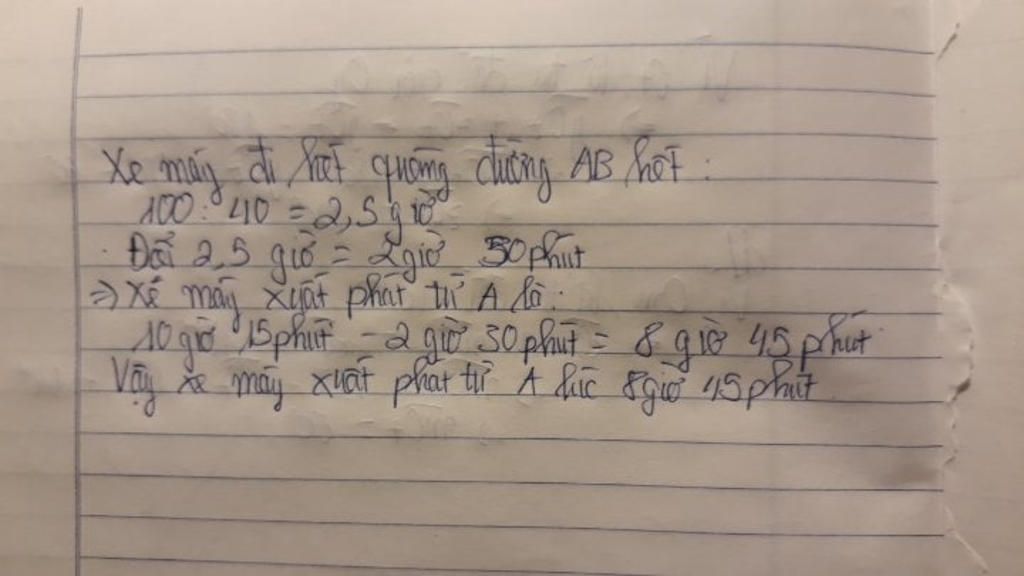 Xe máy đi hết quãng đường AB hết :
100 : 40 = 2,5 giờ
Đổi 2,5 giờ = 2 giờ 30 phút
=> Xe máy xuất phát từ A là :
10 giờ 15 phút - 2 giờ 30 phút = 8 giờ 45 phút
Vậy xe máy xuất phát từ A lúc 8 giờ 45 phút